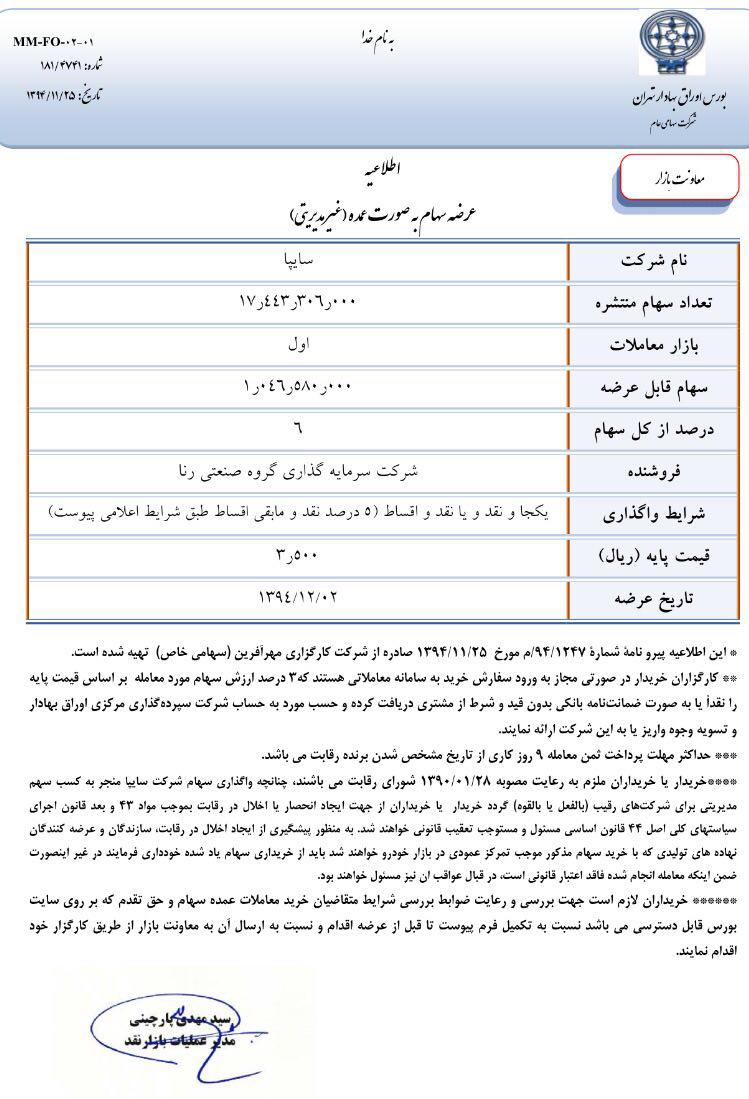 به نام خدا
MM-FO-۰۲-۰۱
شماره: ۱۸۱/۴۷۴۱
تاریخ: ۱۳۹۴/۱۱/۲۵
بورس اوراق بهادار تهران
شرکت سهامی عام
معاونت بازار
اطلاعیه
عرضه سهام به صورت عمده (غیرمدیریتی)
نام شرکت سایپا
تعداد سهام منتشره ۱۷٫۴۴۳٫۳۰۶٫۰۰۰
بازار معاملات اول
سهام قابل عرضه ۱٫۰۴۶٫۵۸۰٫۰۰۰
درصد از کل سهام ۶
فروشنده شرکت سرمایه گذاری گروه صنعتی رنا
شرایط واگذاری یکجا و نقد و یا نقد و اقساط (۵ درصد نقد و مابقی اقساط طبق شرایط اعلامی پیوست)
قیمت پایه (ریال) ۳٫۵۰۰
تاریخ عرضه ۱۳۹٤/۱۲/۰۲
* این اطلاعیه پیرو نامۀ شمارۀ ۹۴/۱۲۴۷/م مورخ ۱۳۹۴/۱۱/۲۵ صادره از شرکت کارگزاری مهرآفرین (سهامی خاص) تهیه شده است.
** کارگزاران خریدار در صورتی مجاز به ورود سفارش خرید به سامانه معاملاتی هستند که۳ درصد ارزش سهام مورد معامله بر اساس قیمت پایه
را نقداً یا به صورت ضمانت‌نامه بانکی بدون قید و شرط از مشتری دریافت کرده و حسب مورد به حساب شرکت سپرده‌گذاری مرکزی اوراق بهادار
و تسویه وجوه واریز یا به این شرکت ارائه نمایند.
*** حداکثر مهلت پرداخت ثمن معامله ۹ روز کاری از تاریخ مشخص شدن برنده رقابت می باشد.
****خریدار یا خریداران ملزم به رعایت مصوبه ۱۳۹۰/۰۱/۲۸ شورای رقابت می باشند، چنانچه واگذاری سهام شرکت سایپا منجر به کسب سهم
مدیریتی برای شرکت‌های رقیب (بالفعل یا بالقوه) گردد خریدار یا خریداران از جهت ایجاد انحصار یا اخلال در رقابت بموجب مواد ۴۳ و بعد قانون اجرای
سیاستهای کلی اصل ۴۴ قانون اساسی مسئول و مستوجب تعقیب قانونی خواهند شد. به منظور پیشگیری از ایجاد اخلال در رقابت، سازندگان و عرضه کنندگان
نهاده های تولیدی که با خرید سهام مذکور موجب تمرکز عمودی در بازار خودرو خواهند شد باید از خریداری سهام یاد شده خودداری فرمایند در غیر اینصورت
ضمن اینکه معامله انجام شده فاقد اعتبار قانونی است، در قبال عواقب ان نیز مسئول خواهند بود.
****** خریداران لازم است جهت بررسی و رعایت ضوابط بررسی شرایط متقاضیان خرید معاملات عمده سهام و حق تقدم که بر روی سایت
بورس قابل دسترسی می باشد نسبت به تکمیل فرم پیوست تا قبل از عرضه اقدام و نسبت به ارسال آن به معاونت بازار از طریق کارگزار خود
اقدام نمایند.
سید مهدی پارچینی
مدیر عملیات بازار نقد